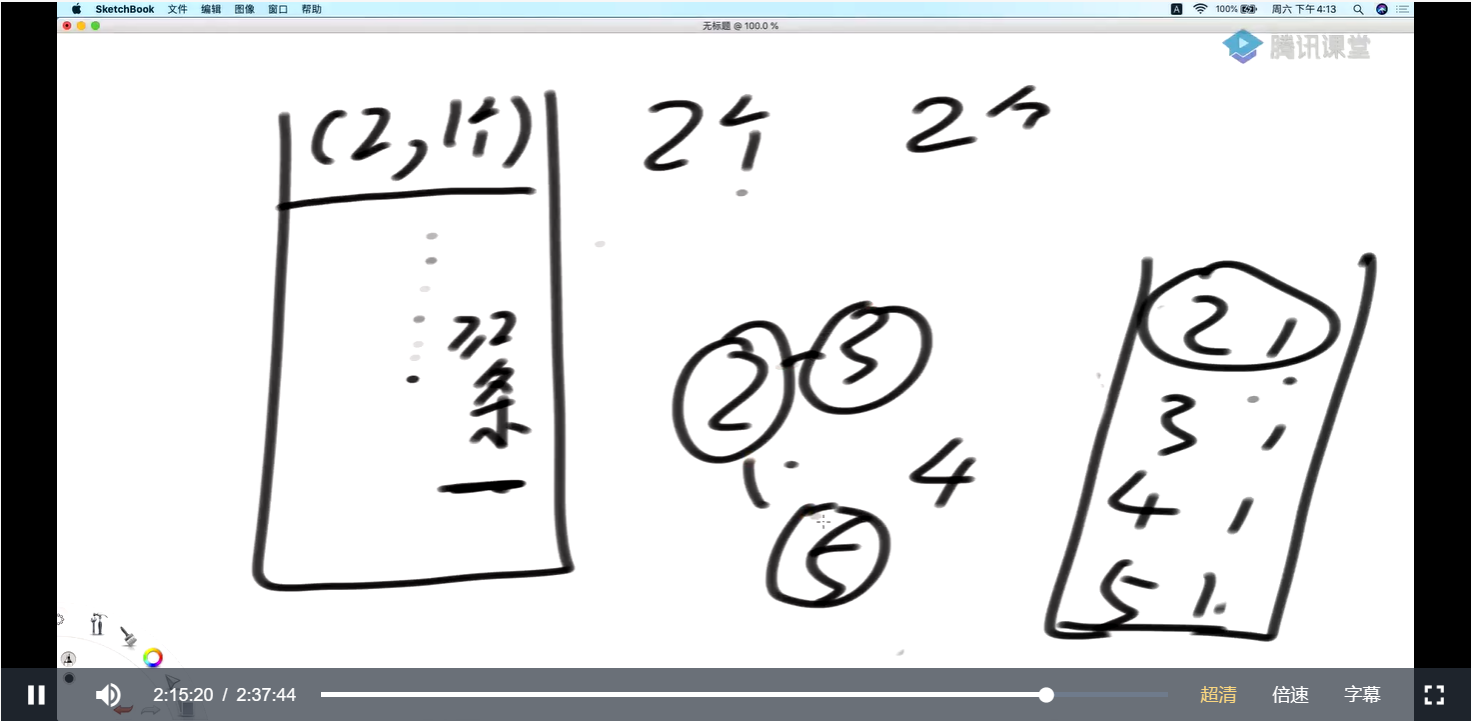 SketchBook 文件 编辑 图像 窗口 帮助
A 100% 周六 下午4:13
无标题 @ 100.0 %
腾讯课堂
(2, 1个) 2个 2个
≥2
条
2 3
4
5
2 1
3 1
4 1
5 1
2:15:20 / 2:37:44 超清 倍速 字幕